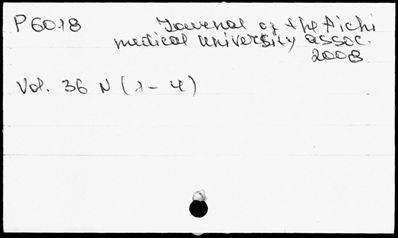 P6018 Journal of the Aichi
medical university assoc.
2008
Vol. 36 N (1-4)